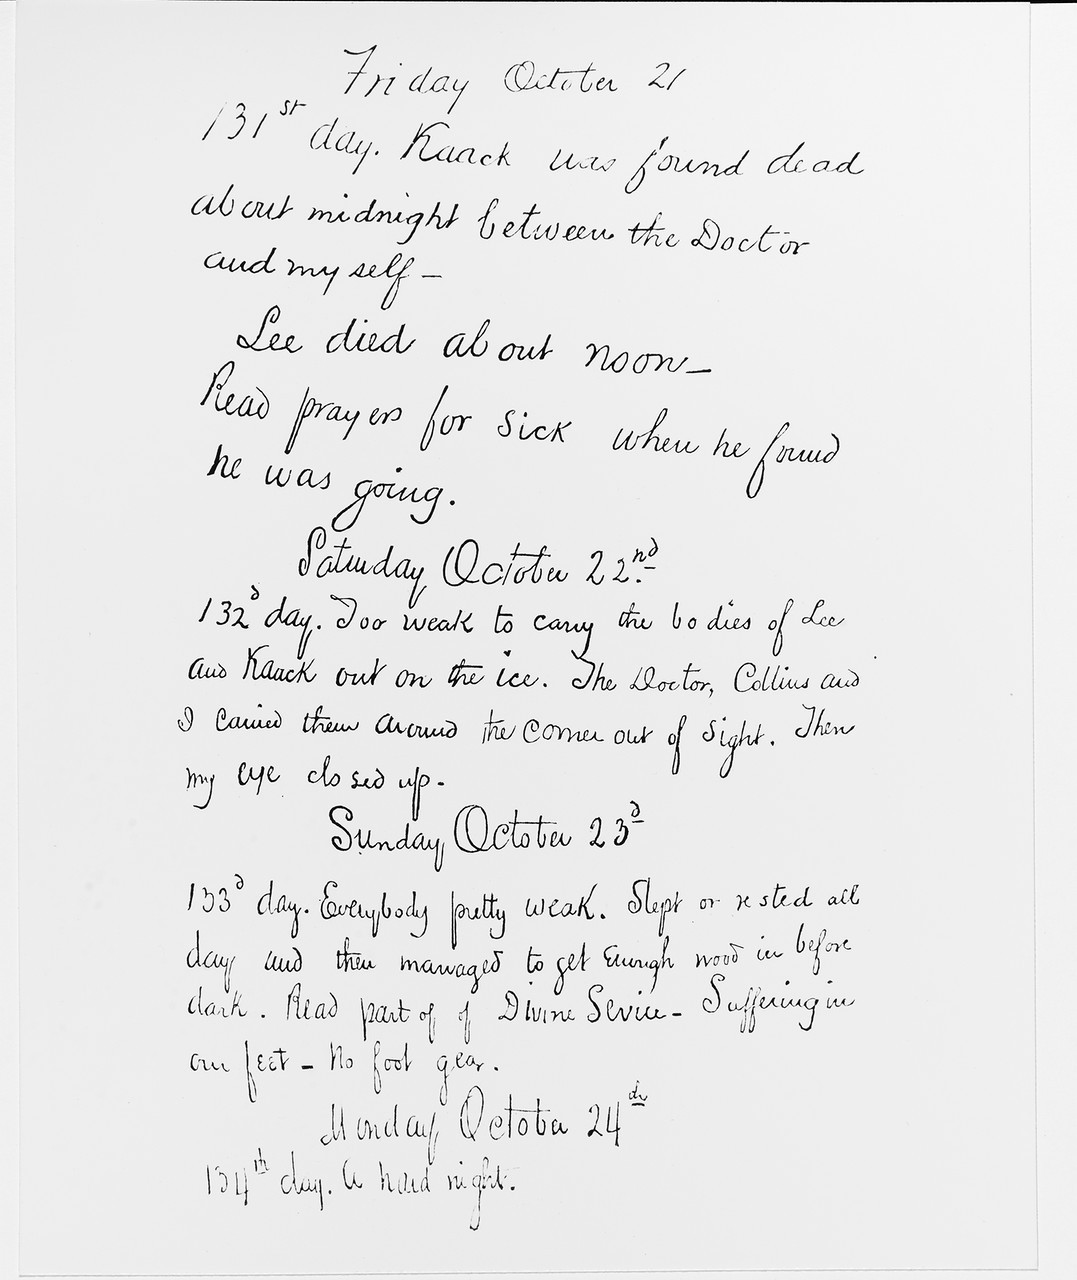 Friday October 21
131st day. Kaack was found dead
about midnight between the Doctor
and myself –
Lee died about noon –
Read prayers for sick when he found
he was going.
Saturday October 22nd
132d day. Too weak to carry the bodies of Lee
and Kaack out on the ice. The Doctor, Collins and
I carried them around the corner out of sight. Then
my eye closed up.
Sunday October 23d
133d day. Everybody pretty weak. Slept or rested all
day and then managed to get enough wood in before
dark. Read part of of Divine Service – Suffering in
our feet – No foot gear.
Monday October 24th
134th day. A hard night.